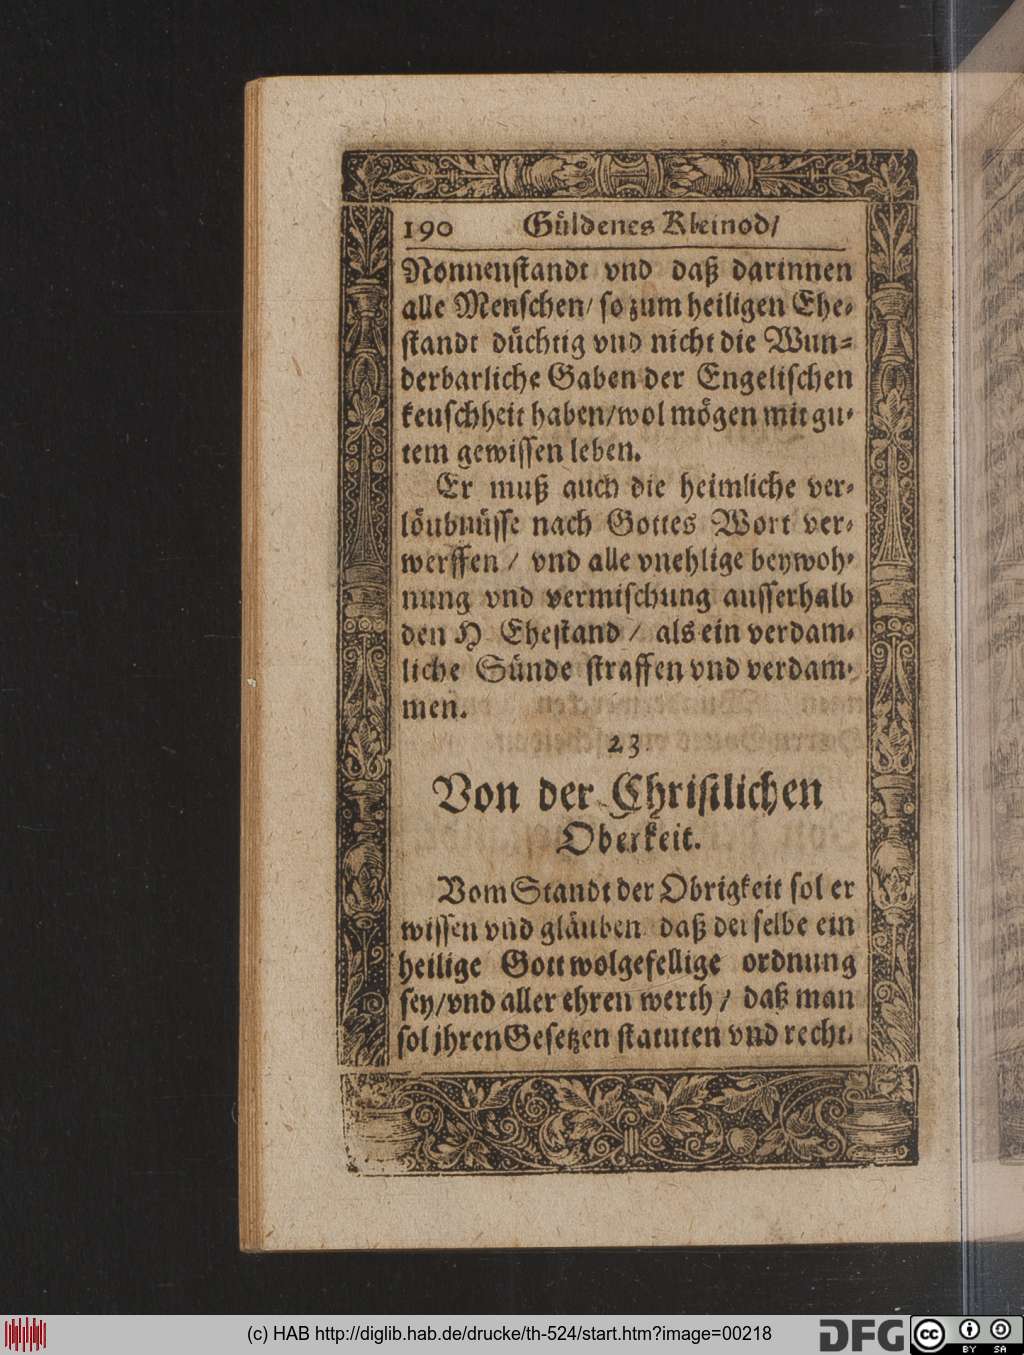 190 Güldenes Kleinod/
Nonnenstandt vnd daß darinnen
alle Menschen/ so zum heiligen Ehe-
standt düchtig vnd nicht die Wun-
derbarliche Gaben der Engelischen
keuschheit haben/wol mögen mit gu-
tem gewissen leben.
Er muß auch die heimliche ver-
löubnüsse nach Gottes Wort ver-
werffen / vnd alle vnehlige beywoh-
nung vnd vermischung ausserhalb
den H. Ehestand / als ein verdam-
liche Sünde straffen vnd verdam-
men.
23.
Von der Christlichen
Oberkeit.
Vom Standt der Obrigkeit sol er
wissen vnd gläuben daß derselbe ein
heilige Gott wolgefellige ordnung
sey/vnd aller ehren werth / daß man
sol jhren Gesetzen statuten vnd recht-
(c) HAB http://diglib.hab.de/drucke/th-524/start.htm?image=00218
DFG cc BY SA